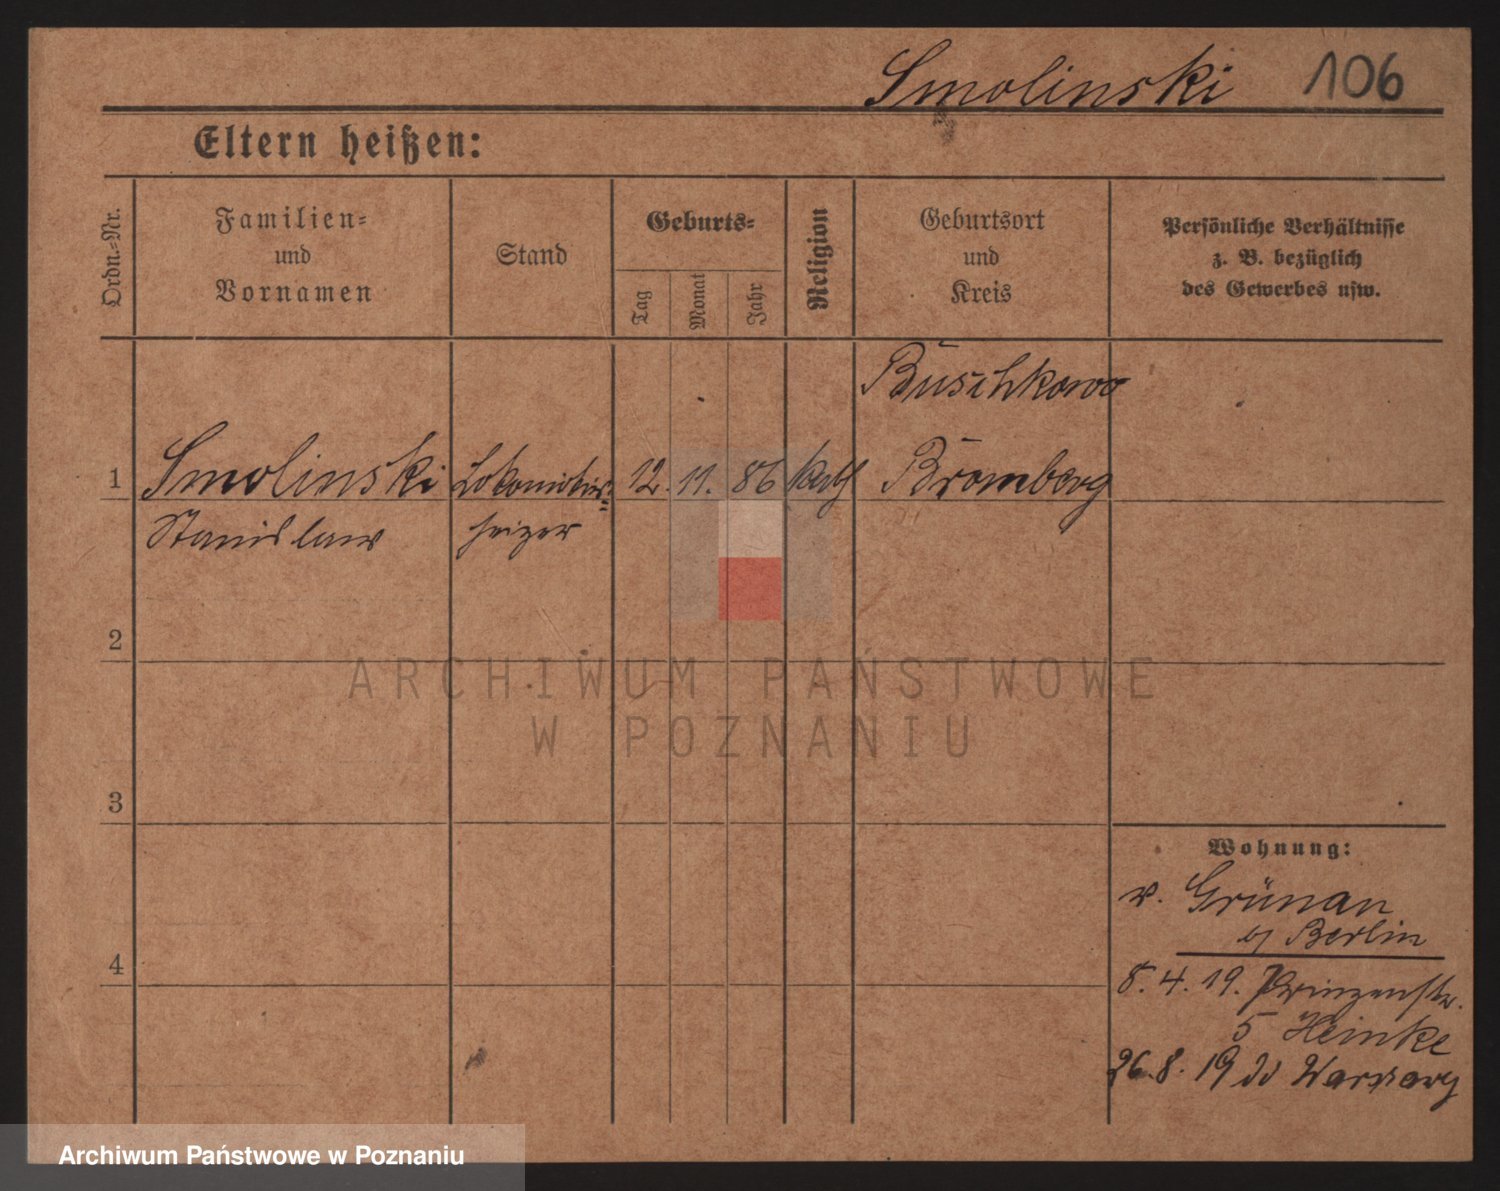 Smolinski 106
Eltern heißen:
Ordn.-Nr.
Familien-
und
Vornamen
Stand
Geburts-
Tag
Monat
Jahr
Religion
Geburtsort
und
Kreis
Persönliche Verhältnisse
z. B. bezüglich
des Gewerbes usw.
Buschkowo
1 Smolinski Lokomotiv- 12. 11. 86 kath Bromberg
Stanislaw heizer
2
ARCHIWUM PAŃSTWOWE
W POZNANIU
3
Wohnung:
v. Grünau
b/ Berlin
4
8. 4. 19. Prinzenstr.
5 Heinke
26. 8. 19
Archiwum Państwowe w Poznaniu